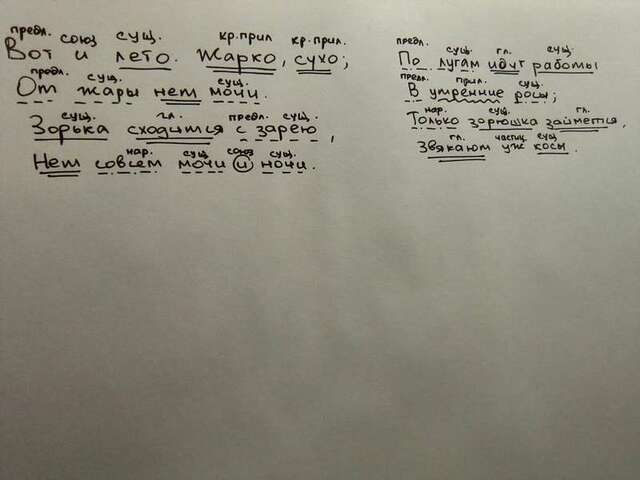 предл. союз сущ. кр.прил кр.прил.
Вот и лето. Жарко, сухо;
предл. сущ. сущ.
От жары нет мочи.
сущ. гл. предл. сущ.
Зорька сходится с зарею,
нар. сущ. союз сущ.
Нет совсем мочи и ночи.
предл. сущ. гл. сущ.
По лугам идут работы
предл. прил. сущ.
В утренние росы;
нар. сущ. гл.
Только зорюшка займется,
гл. частиц. сущ
Звякают уж косы.